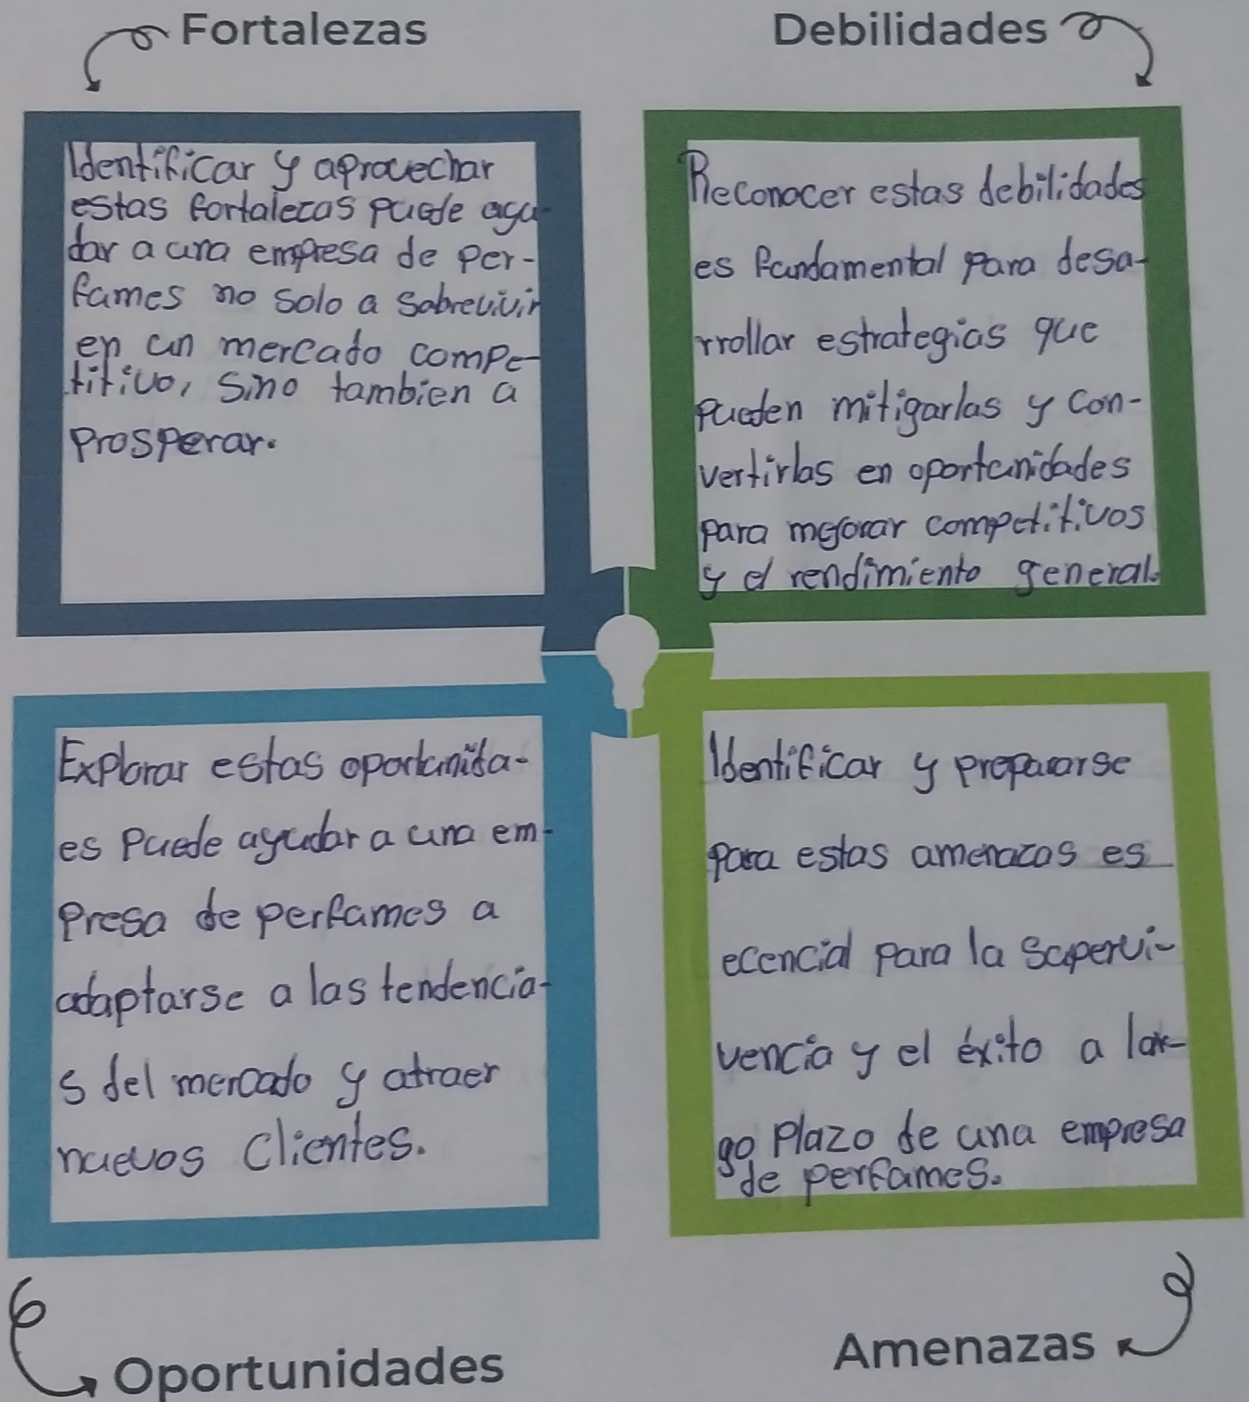 Fortalezas
Identificar y aprovechar
estas fortalezas puede ayu-
dar a una empresa de per-
fumes no solo a sobrevivir
en un mercado compe-
titivo, sino tambien a
prosperar.
Debilidades
Reconocer estas debilidades
es fundamental para desa-
rrollar estrategias que
pueden mitigarlas y con-
vertirlas en oportunidades
para mejorar competitivos
y el rendimiento general.
Explorar estas oportunida-
es puede ayudar a una em-
presa de perfumes a
adaptarse a las tendencia-
s del mercado y atraer
nuevos clientes.
Oportunidades
Identificar y prepararse
para estas amenazas es
ecencial para la supervi-
vencia y el éxito a lar-
go plazo de una empresa
de perfumes.
Amenazas